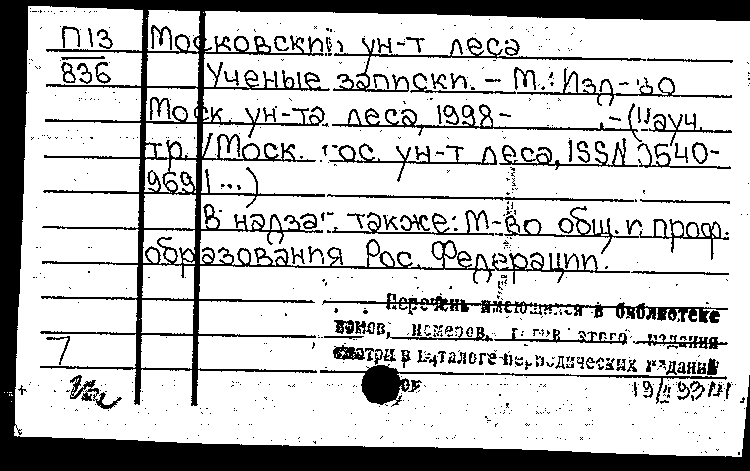 П13 Московский ун-т леса
836 Ученые записки. – М.: Изд-во
Моск. ун-та леса, 1998 – . – (Науч.
тр. / Моск. гос. ун-т леса, ISSN 0540-
969 ...)
В надзаг. также: М-во общ. и проф.
образования Рос. Федерации.
Перечень имеющихся в библиотеке
томов, номеров, этого издания
смотри в каталоге периодических изданий
7